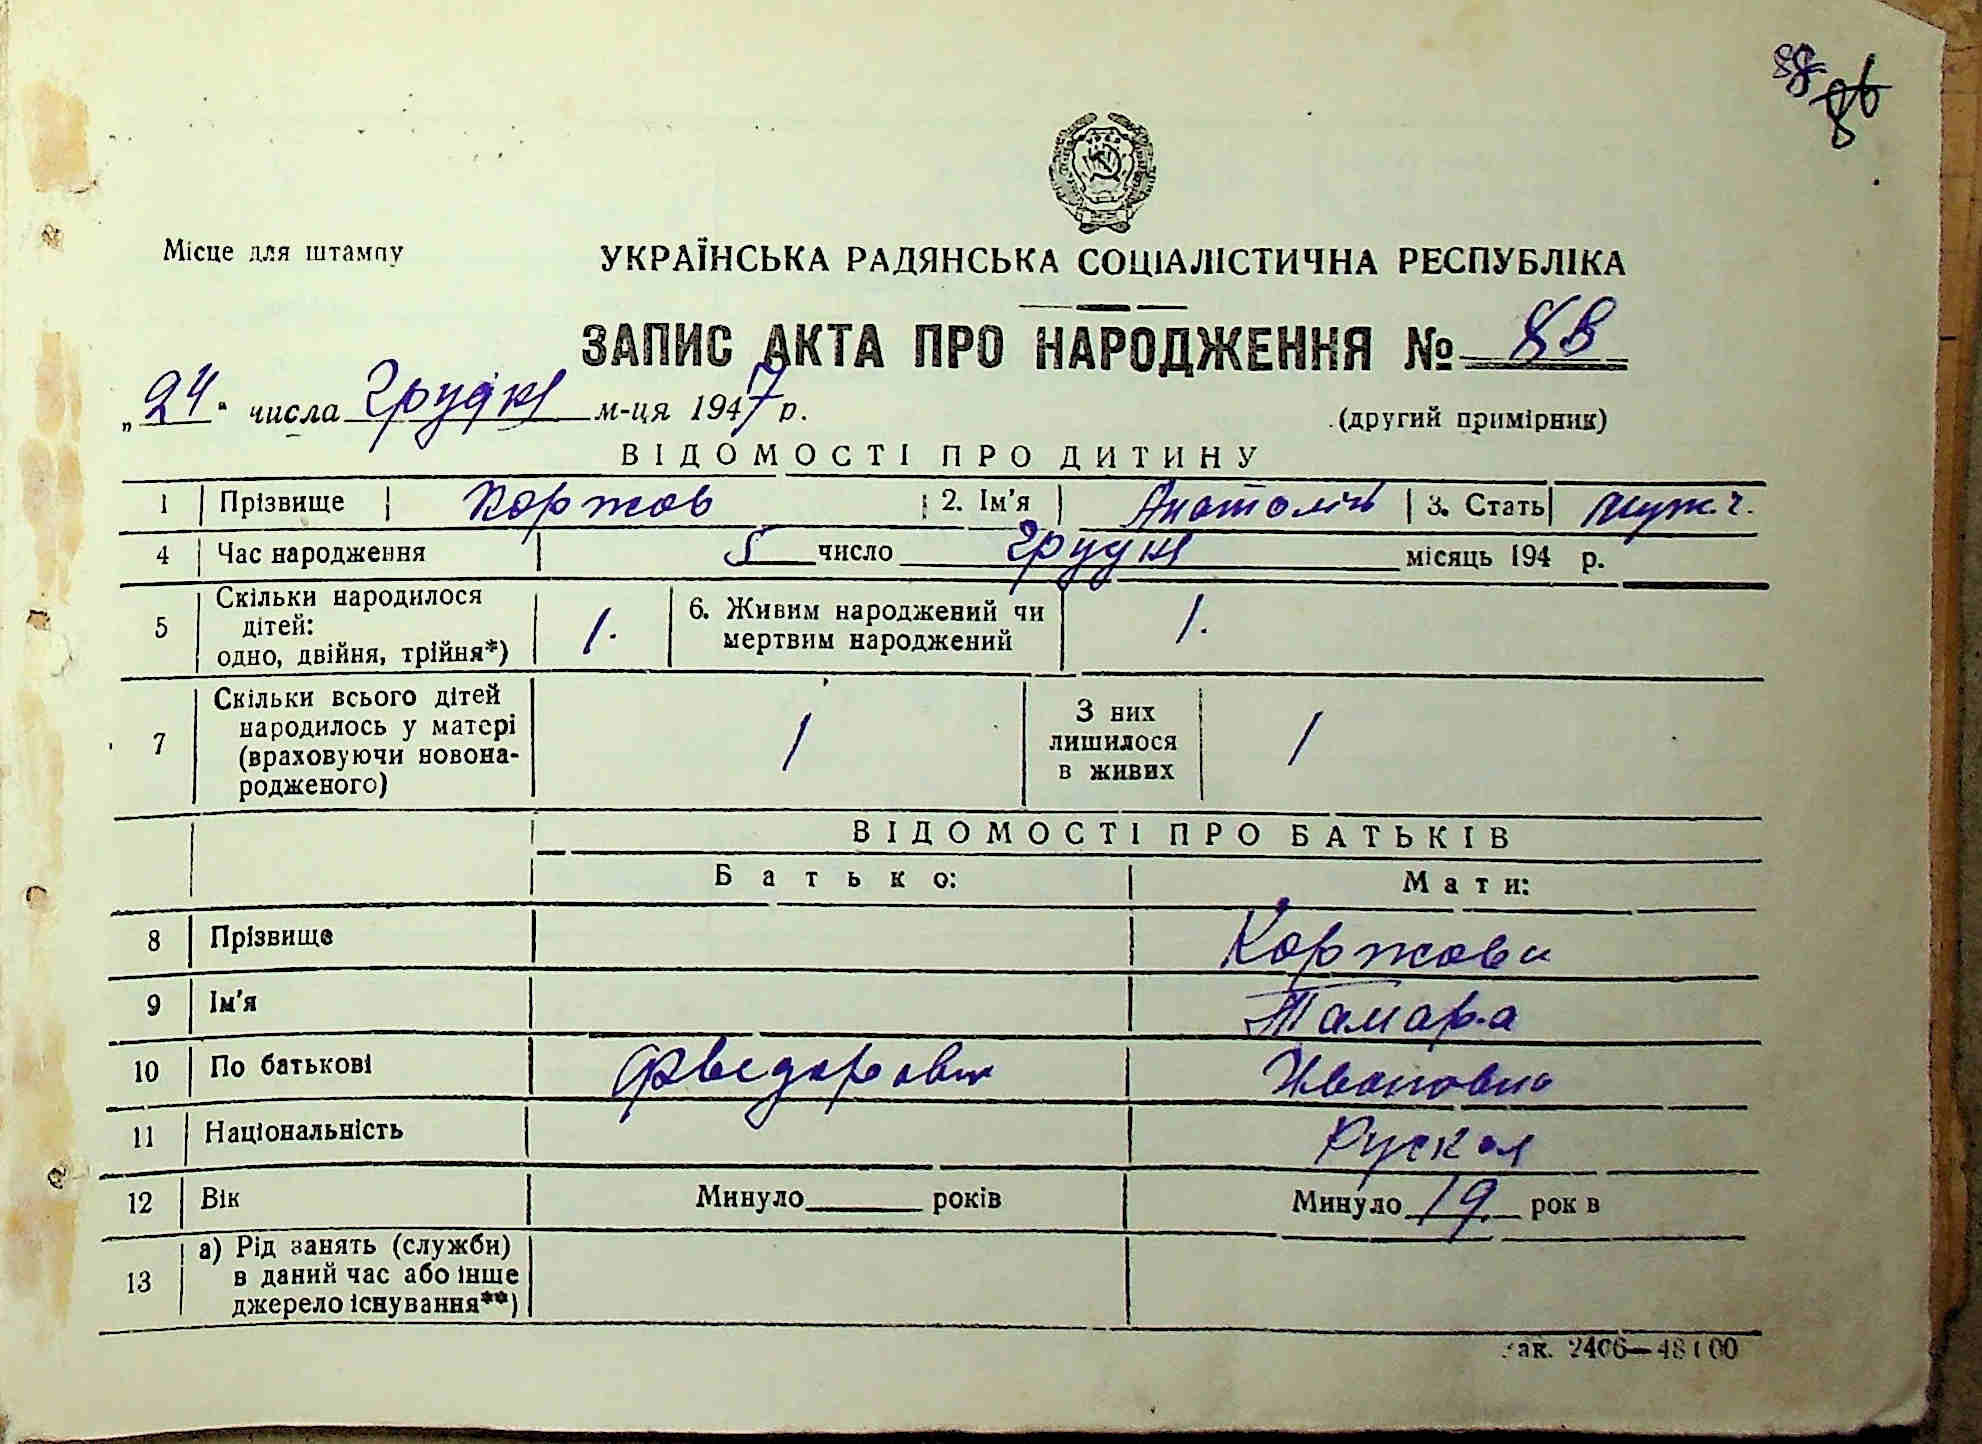 88
86
УРСР
Місце для штампу
УКРАЇНСЬКА РАДЯНСЬКА СОЦІАЛІСТИЧНА РЕСПУБЛІКА
ЗАПИС АКТА ПРО НАРОДЖЕННЯ № 88
„24“ числа Грудня м-ця 1947 р.
(другий примірник)
ВІДОМОСТІ ПРО ДИТИНУ
1 Прізвище Коржов 2. Ім'я Анатолій 3. Стать муж. ч.
4 Час народження 5 число Грудня місяць 194 р.
5 Скільки народилося дітей: одно, двійня, трійня*) 1. 6. Живим народжений чи мертвим народжений 1.
7 Скільки всього дітей народилось у матері (враховуючи новонародженого) 1 З них лишилося в живих 1
ВІДОМОСТІ ПРО БАТЬКІВ
Батько: Мати:
8 Прізвище Коржова
9 Ім'я Тамара
10 По батькові Фьедорович Ивановна
11 Національність Руская
12 Вік Минуло років Минуло 19 рок в
13 а) Рід занять (служби) в даний час або інше джерело існування**)
зак. 2406—48100